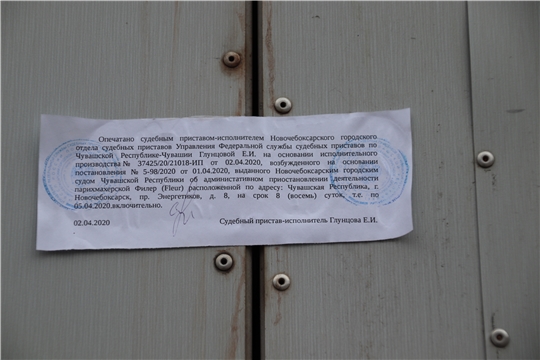 Опечатано судебным приставом-исполнителем Новочебоксарского городского
отдела судебных приставов Управления Федеральной службы судебных приставов по
Чувашской Республике-Чувашии Глунцовой Е.И. на основании исполнительного
производства № 37425/20/21018-ИП от 02.04.2020, возбужденного на основании
постановления № 5-98/2020 от 01.04.2020, выданного Новочебоксарским городским
судом Чувашской Республики об административном приостановлении деятельности
парикмахерской Филер (Fleur) расположенной по адресу: Чувашская Республика, г.
Новочебоксарск, пр. Энергетиков, д. 8, на срок 8 (восемь) суток, т.е. по
05.04.2020.включительно.
02.04.2020 Судебный пристав-исполнитель Глунцова Е.И.